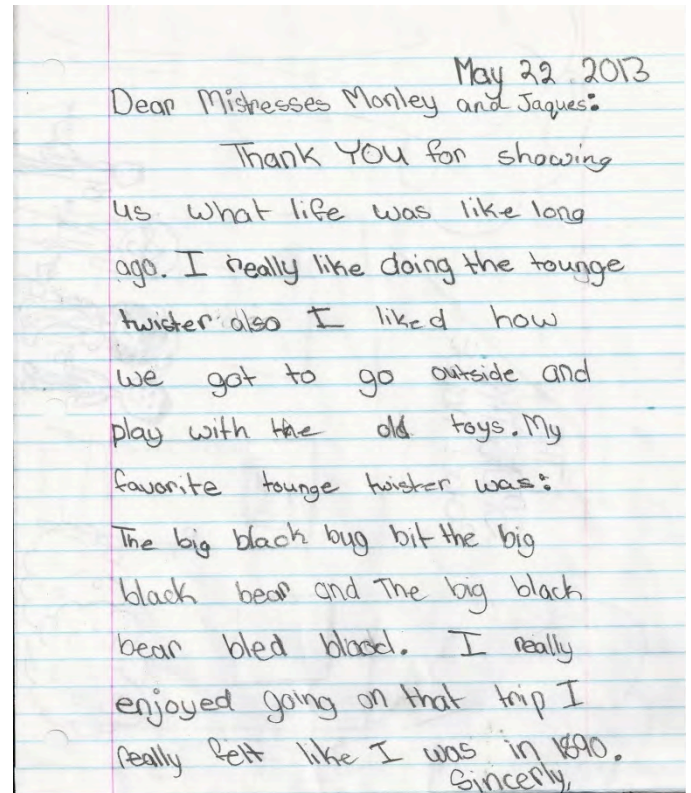 May 22 2013
Dear Mistresses Monley and Jaques:
Thank YOU for showing
us what life was like long
ago. I really like doing the tounge
twister also I liked how
we got to go outside and
play with the old toys. My
favorite tounge twister was:
The big black bug bit the big
black bear and The big black
bear bled blood. I really
enjoyed going on that trip I
really felt like I was in 1890.
Sincerly,